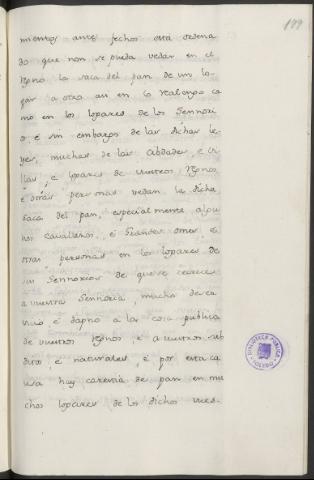 199
mientos antes fechos está ordena
do que non se pueda vedar en el
Reyno la saca del pan de un lo-
gar a otro aun en lo realengo co
mo en los logares de los Sennorí
os é sin embargo de las dichas le
yes, muchas de las cibdades, e vi
llas, e logares de vuestros Regnos
é otras personas vedan la dicha
saca del pan, especialmente algu
nos cavalleros, é grandes omes é
otras personas en los logares de
sus Sennorios de que se recrece
a vuestra Sennoria, mucho deser
vicio é dapno a la cosa publica
de vuestros regnos, é a vuestros sub
ditos, é naturales, é por esta ca
usa hay carestia de pan en mu
chos logares de los dichos vues-
BIBLIOTECA PUBLICA
TOLEDO